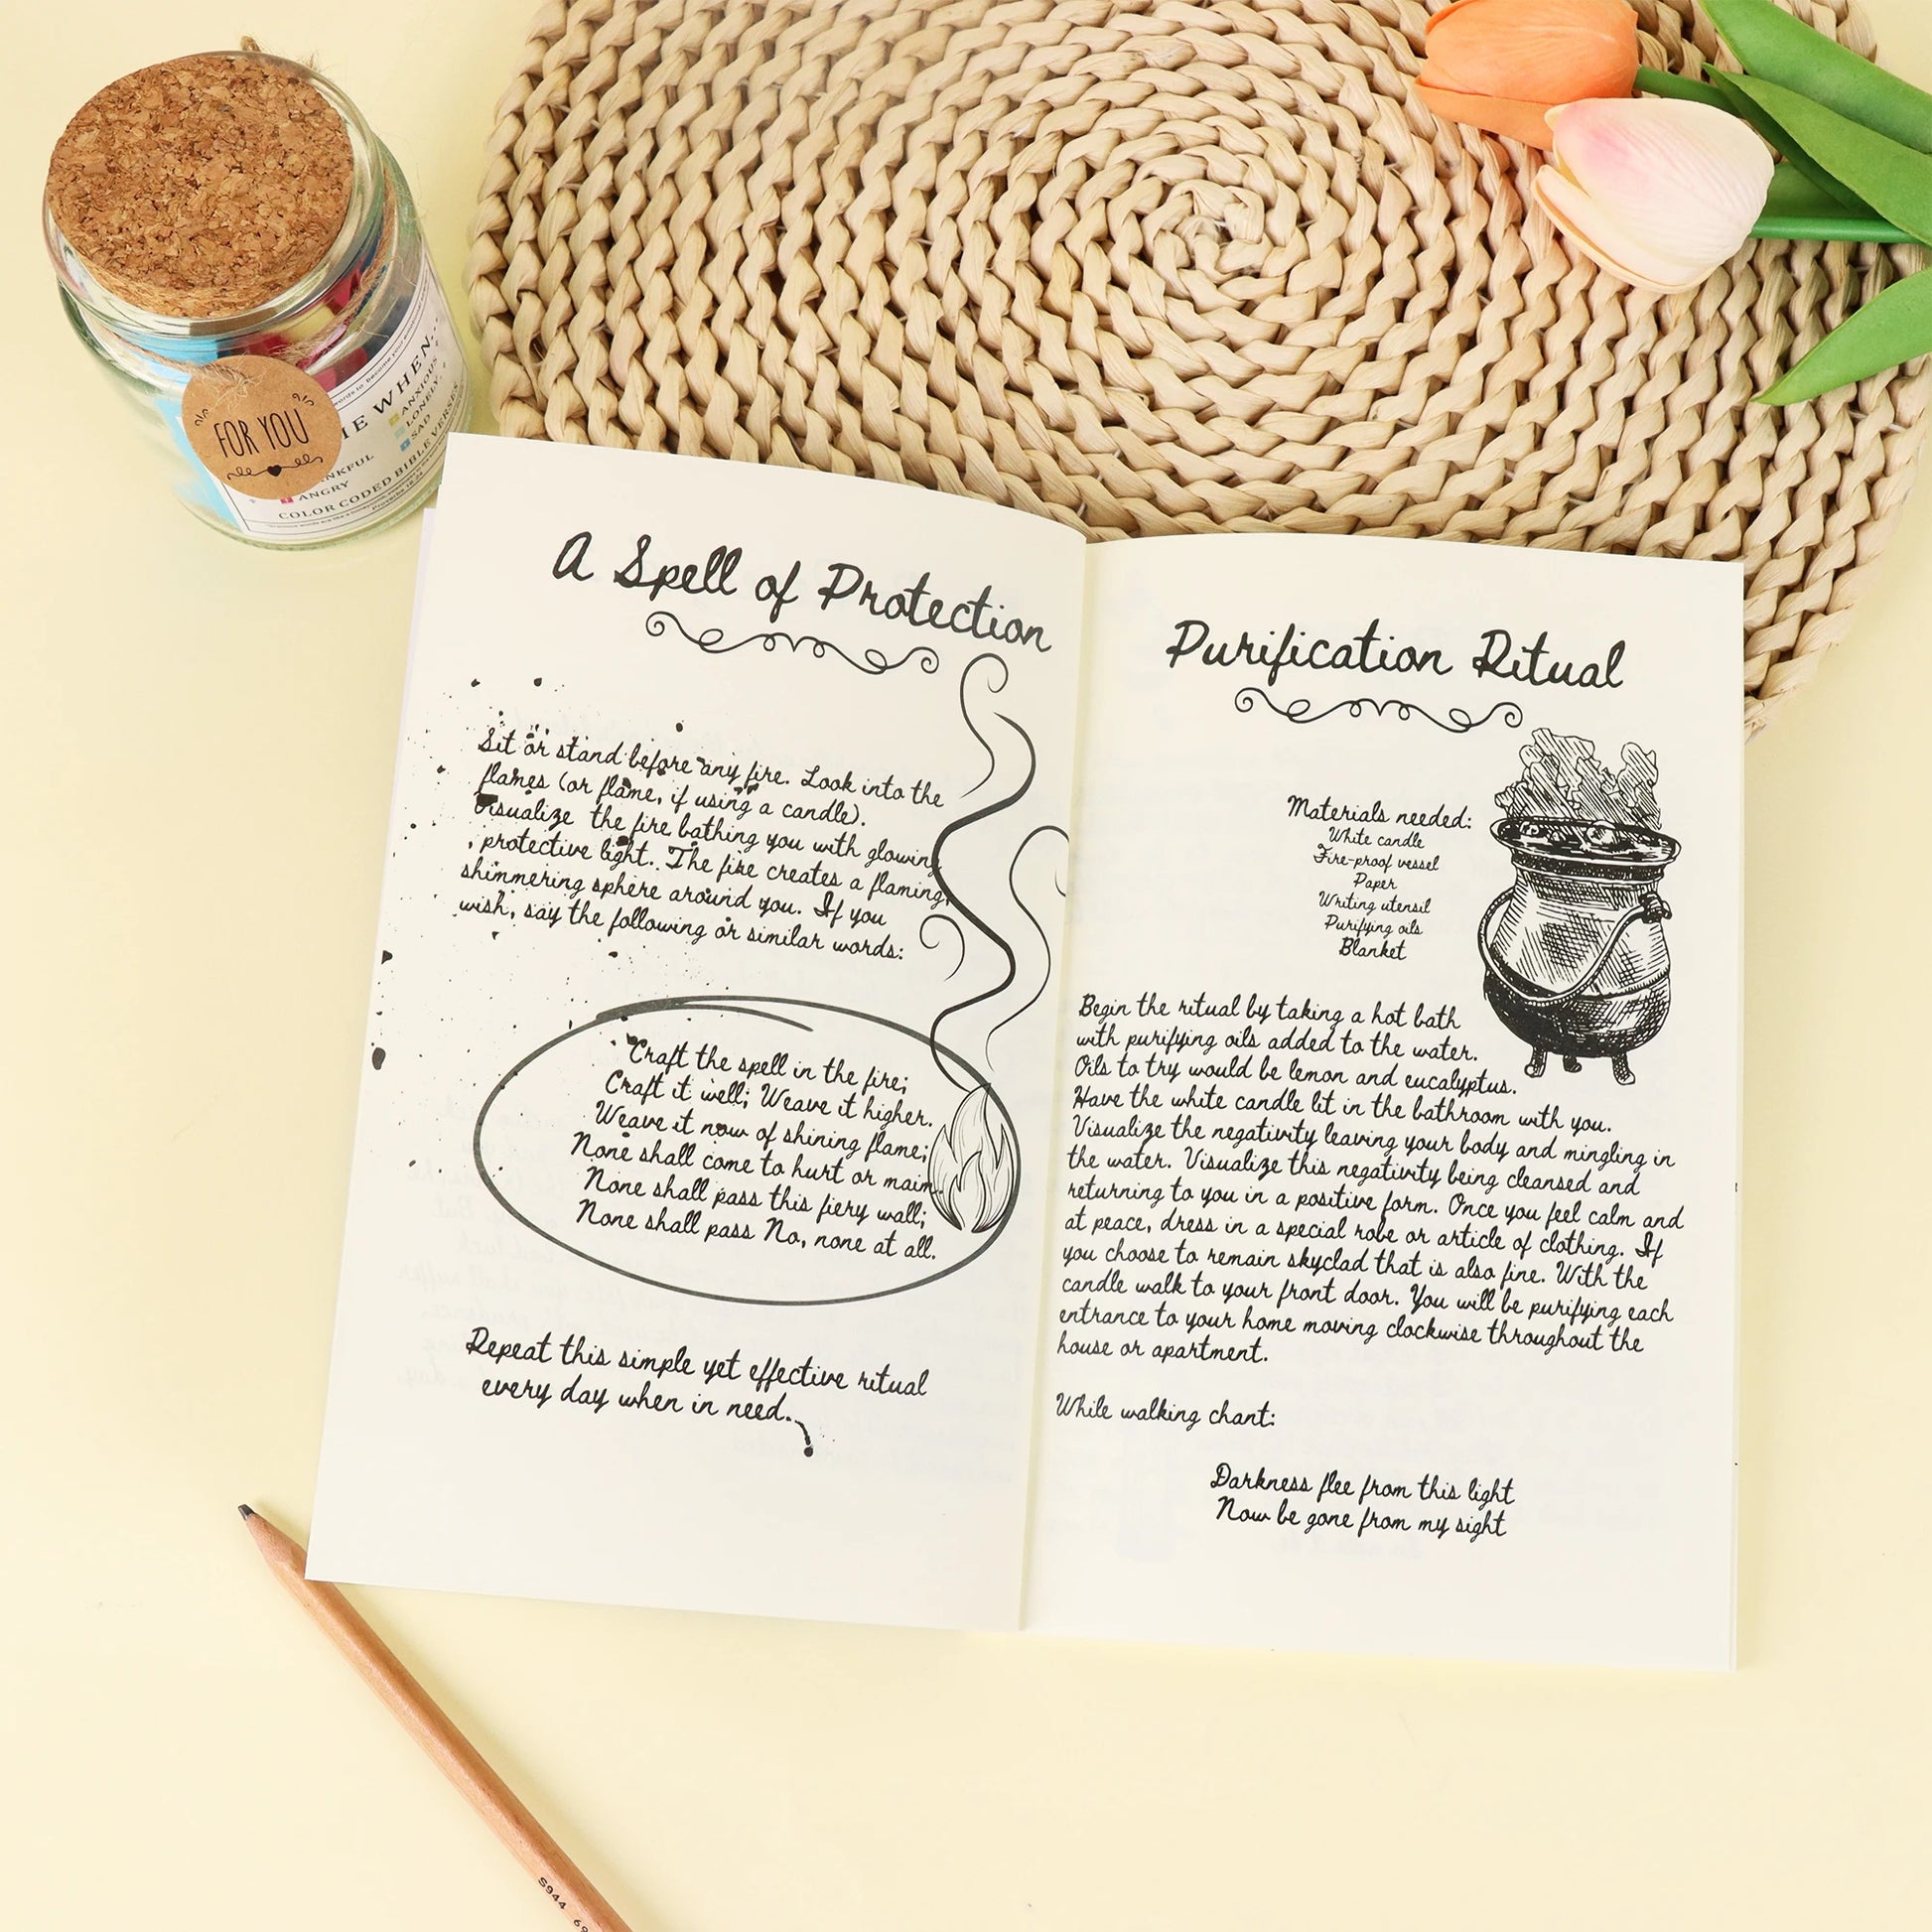 FOR YOU
ME WHEN...
ANXIOUS
LONELY
SAD
ANGRY
COLOR CODED BIBLE VERSES
A Spell of Protection
Sit or stand before any fire. Look into the
flames (or flame, if using a candle).
Visualize the fire bathing you with glowing
, protective light. The fire creates a flaming,
shimmering sphere around you. If you
wish, say the following or similar words:
Craft the spell in the fire;
Craft it well; Weave it higher.
Weave it now of shining flame;
None shall come to hurt or maim.
None shall pass this fiery wall;
None shall pass No, none at all.
Repeat this simple yet effective ritual
every day when in need.
Purification Ritual
Materials needed:
White candle
Fire-proof vessel
Paper
Writing utensil
Purifying oils
Blanket
Begin the ritual by taking a hot bath
with purifying oils added to the water.
Oils to try would be lemon and eucalyptus.
Have the white candle lit in the bathroom with you.
Visualize the negativity leaving your body and mingling in
the water. Visualize this negativity being cleansed and
returning to you in a positive form. Once you feel calm and
at peace, dress in a special robe or article of clothing. If
you choose to remain skyclad that is also fine. With the
candle walk to your front door. You will be purifying each
entrance to your home moving clockwise throughout the
house or apartment.
While walking chant:
Darkness flee from this light
Now be gone from my sight
S944